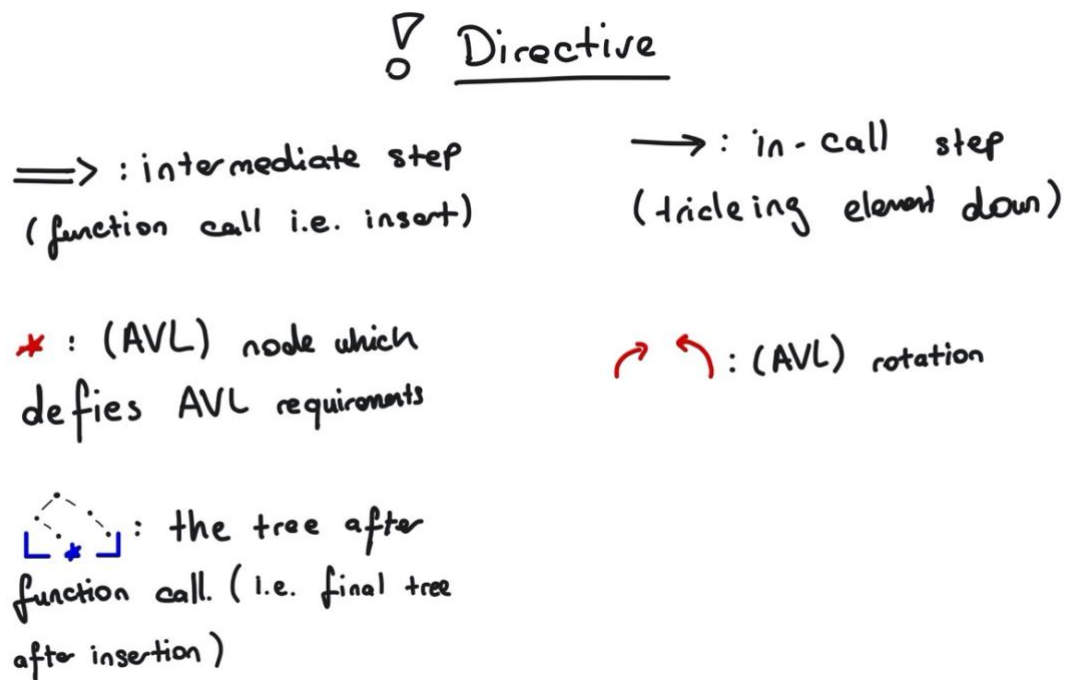 ! Directive
⇒ : intermediate step
(function call i.e. insert)
→ : in-call step
(tricleing element down)
* : (AVL) node which
defies AVL requirements
: (AVL) rotation
: the tree after
function call. (i.e. final tree
after insertion)